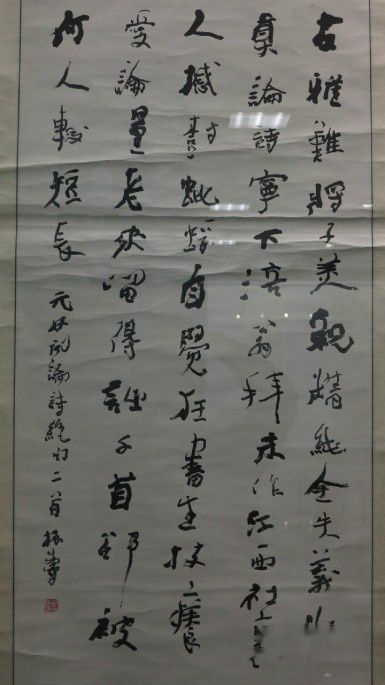 古雅難將子美親精純全失義山
真論詩寧下涪翁拜未作江西社裏
人撼樹蚍蜉自覺狂書生技癢
愛論量老來留得詩千首卻被
何人較短長
元好問論詩絕句二首